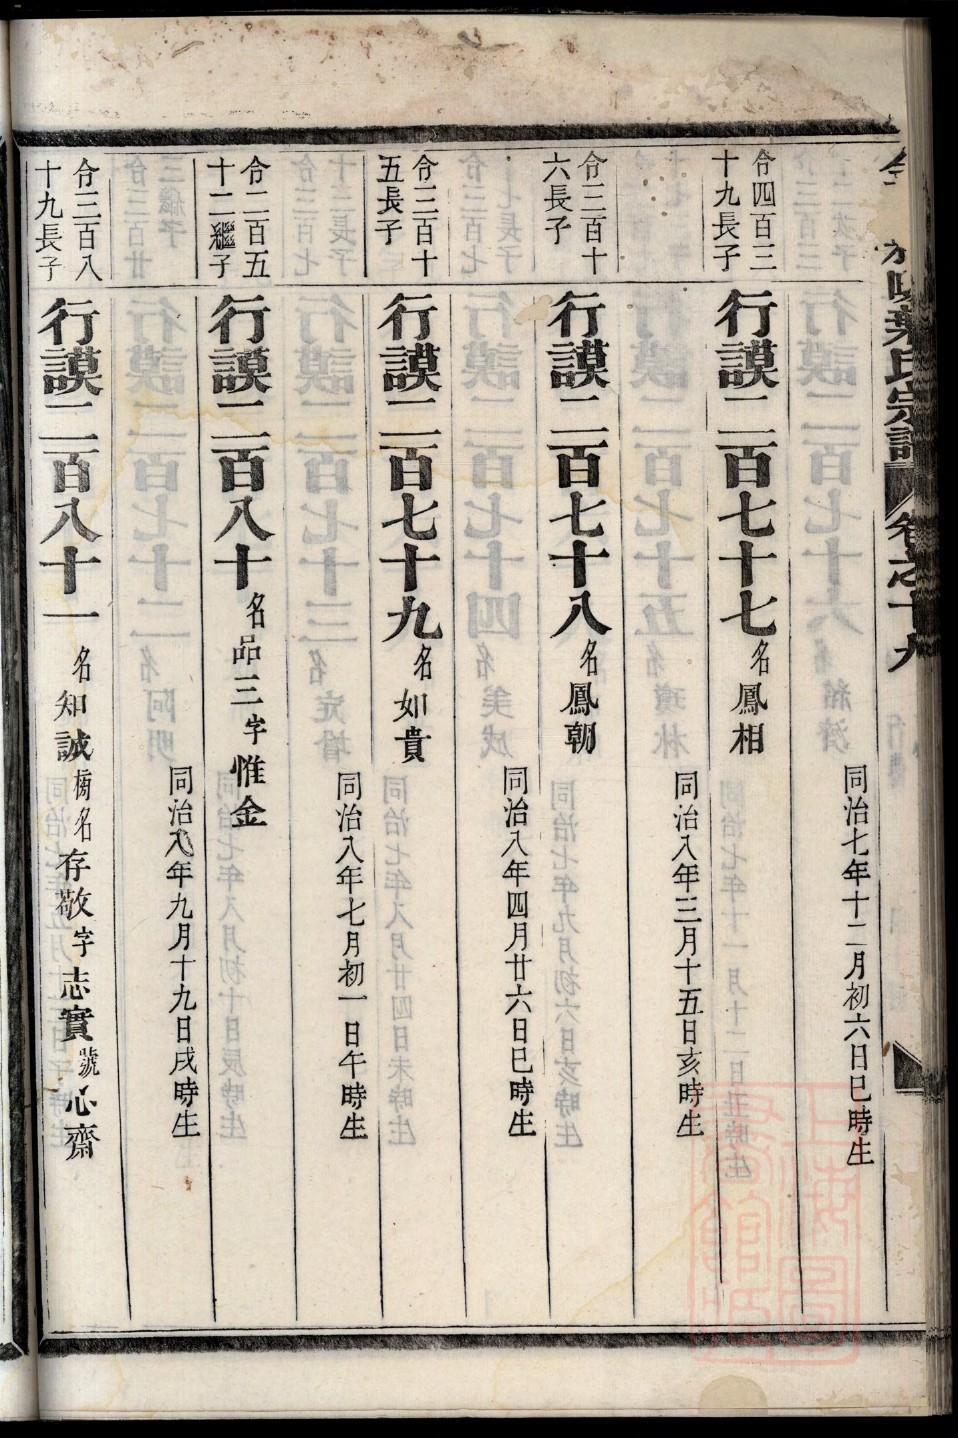 葉氏宗譜
卷之十九
同治七年十二月初六日巳時生
令四百三十九長子
行謨二百七十七 名鳳相
同治八年三月十五日亥時生
令三百十六長子
行謨二百七十八 名鳳朝
同治八年四月廿六日巳時生
令三百十五長子
行謨二百七十九 名如貴
同治八年七月初一日午時生
令二百五十二繼子
行謨二百八十 名品三字惟金
同治八年九月十九日戌時生
令三百八十九長子
行謨二百八十一 名知誠榜名存敬字志實號心齋